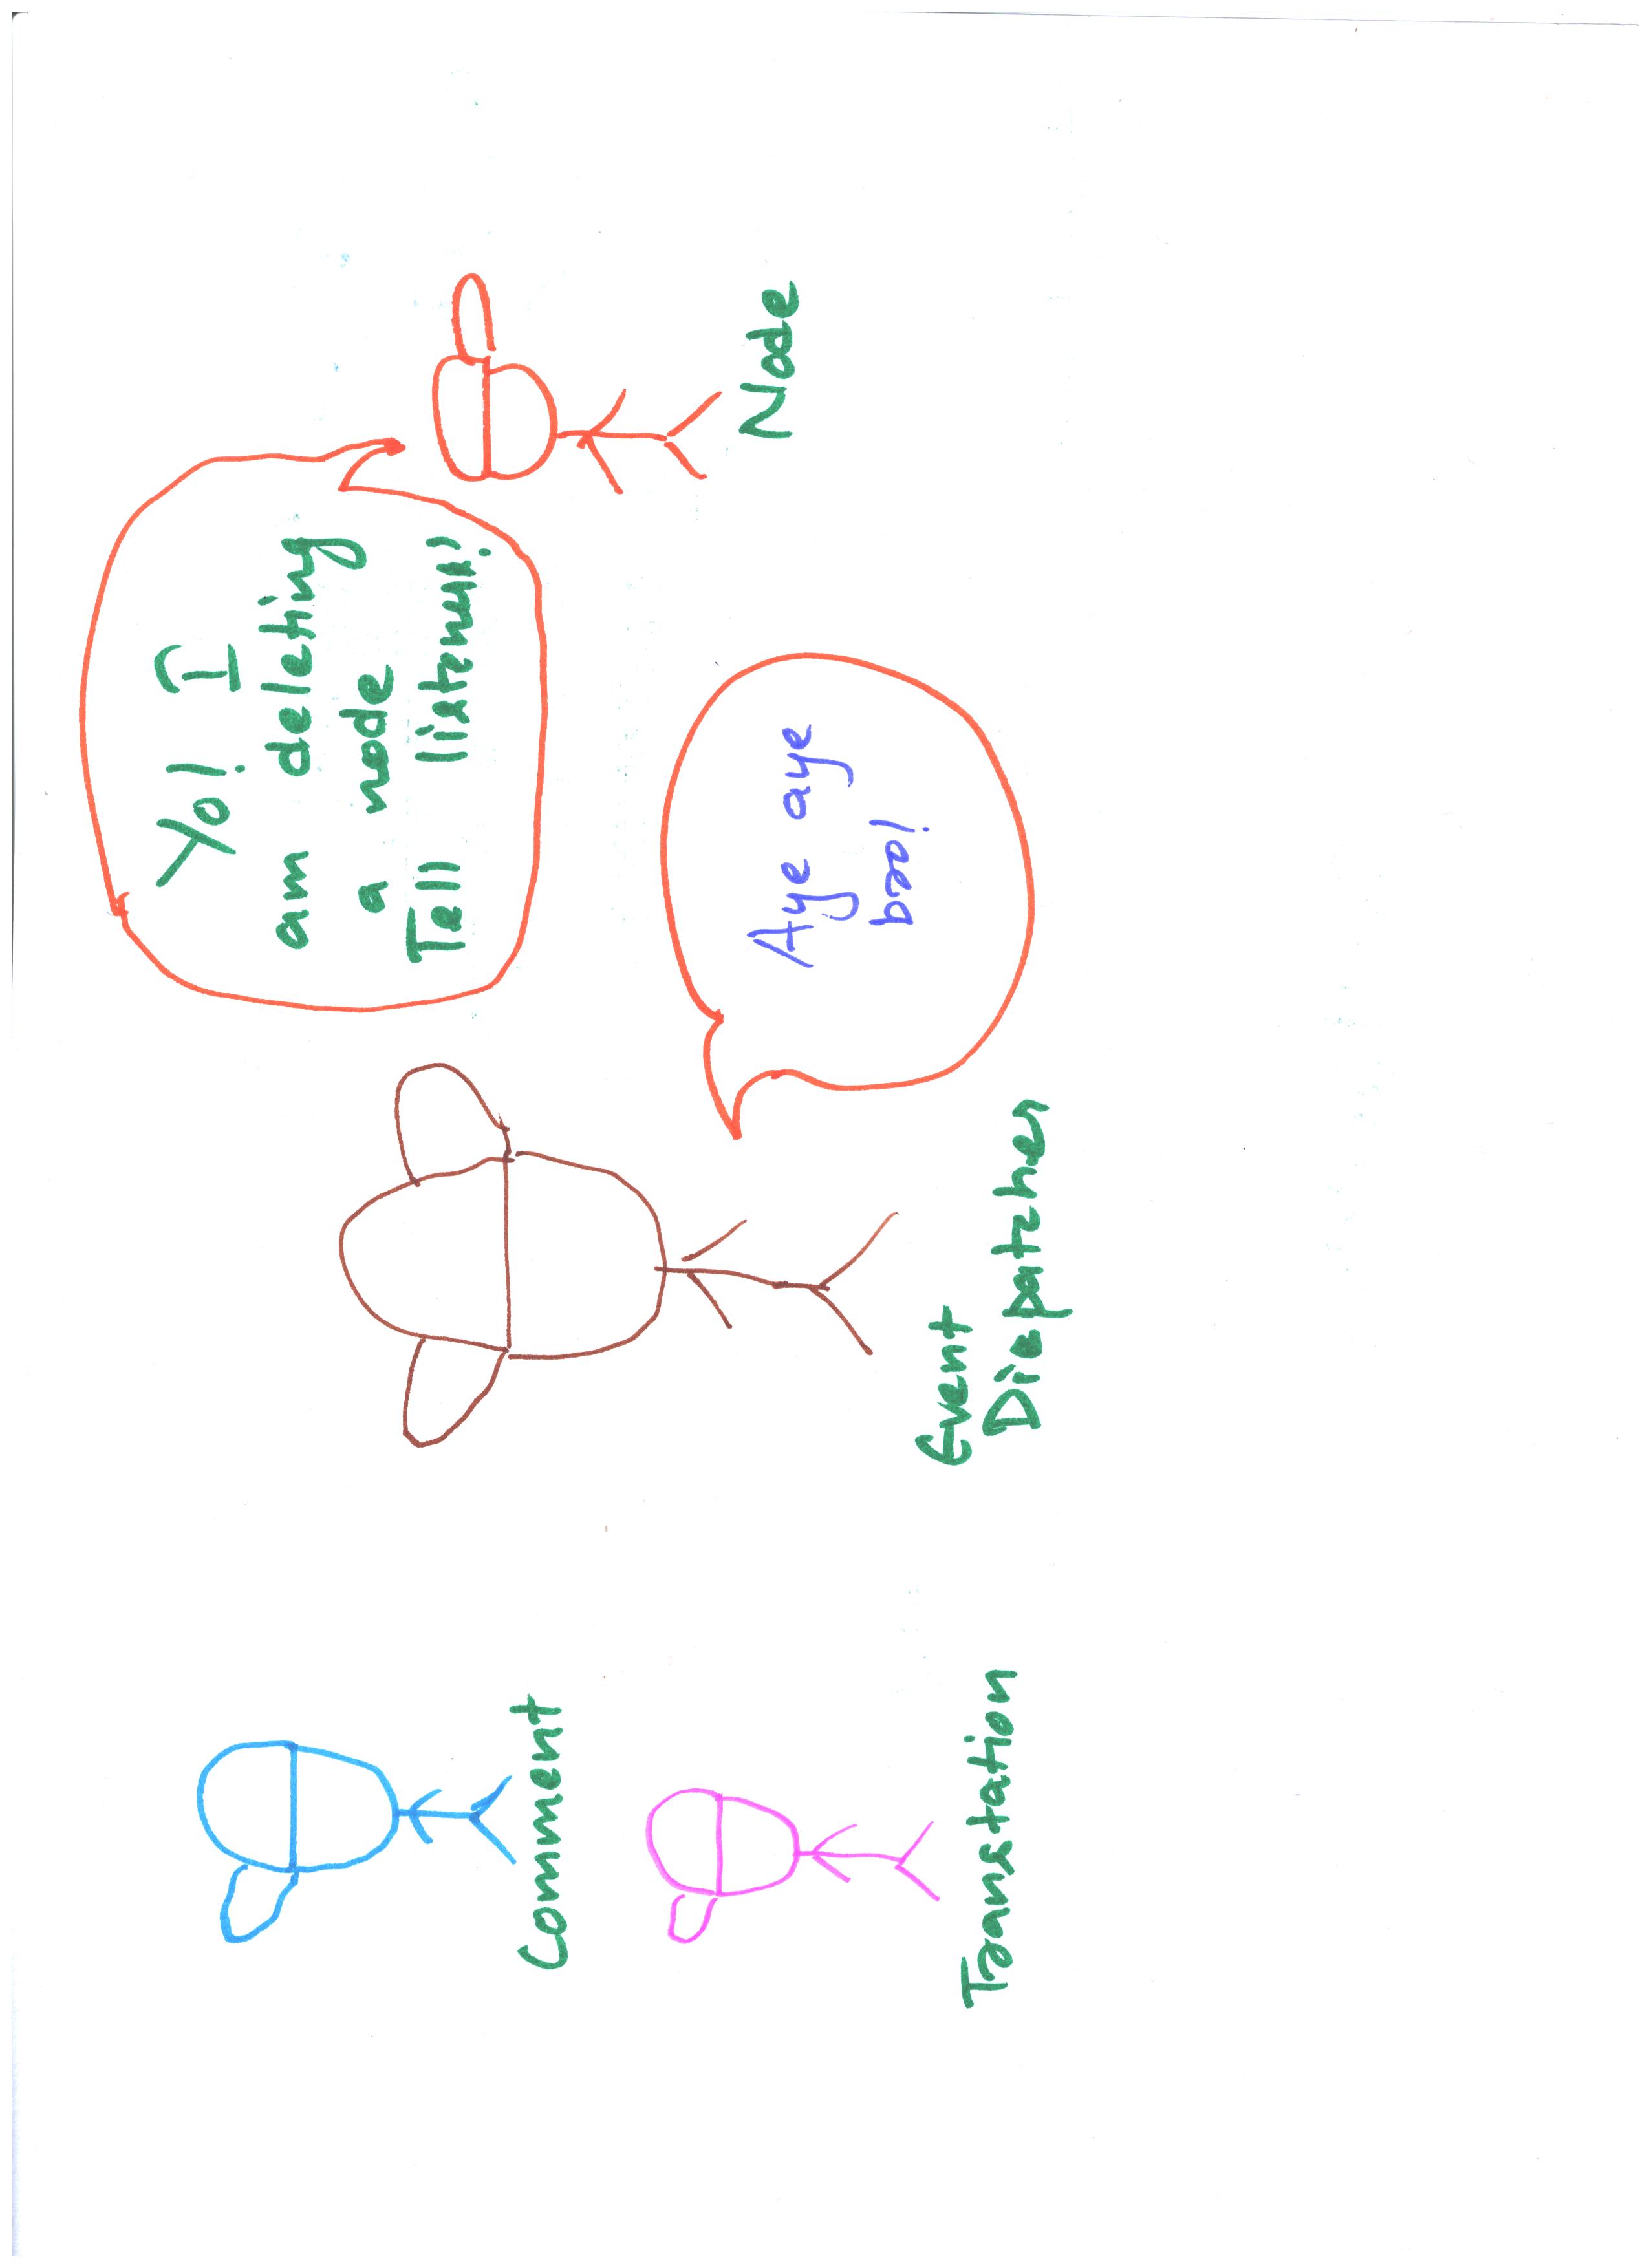 Yo! I
am deleting
a node
Tell listeners!
Comment
Node
Aye aye
bro!
Transtation
Event
Dispatcher